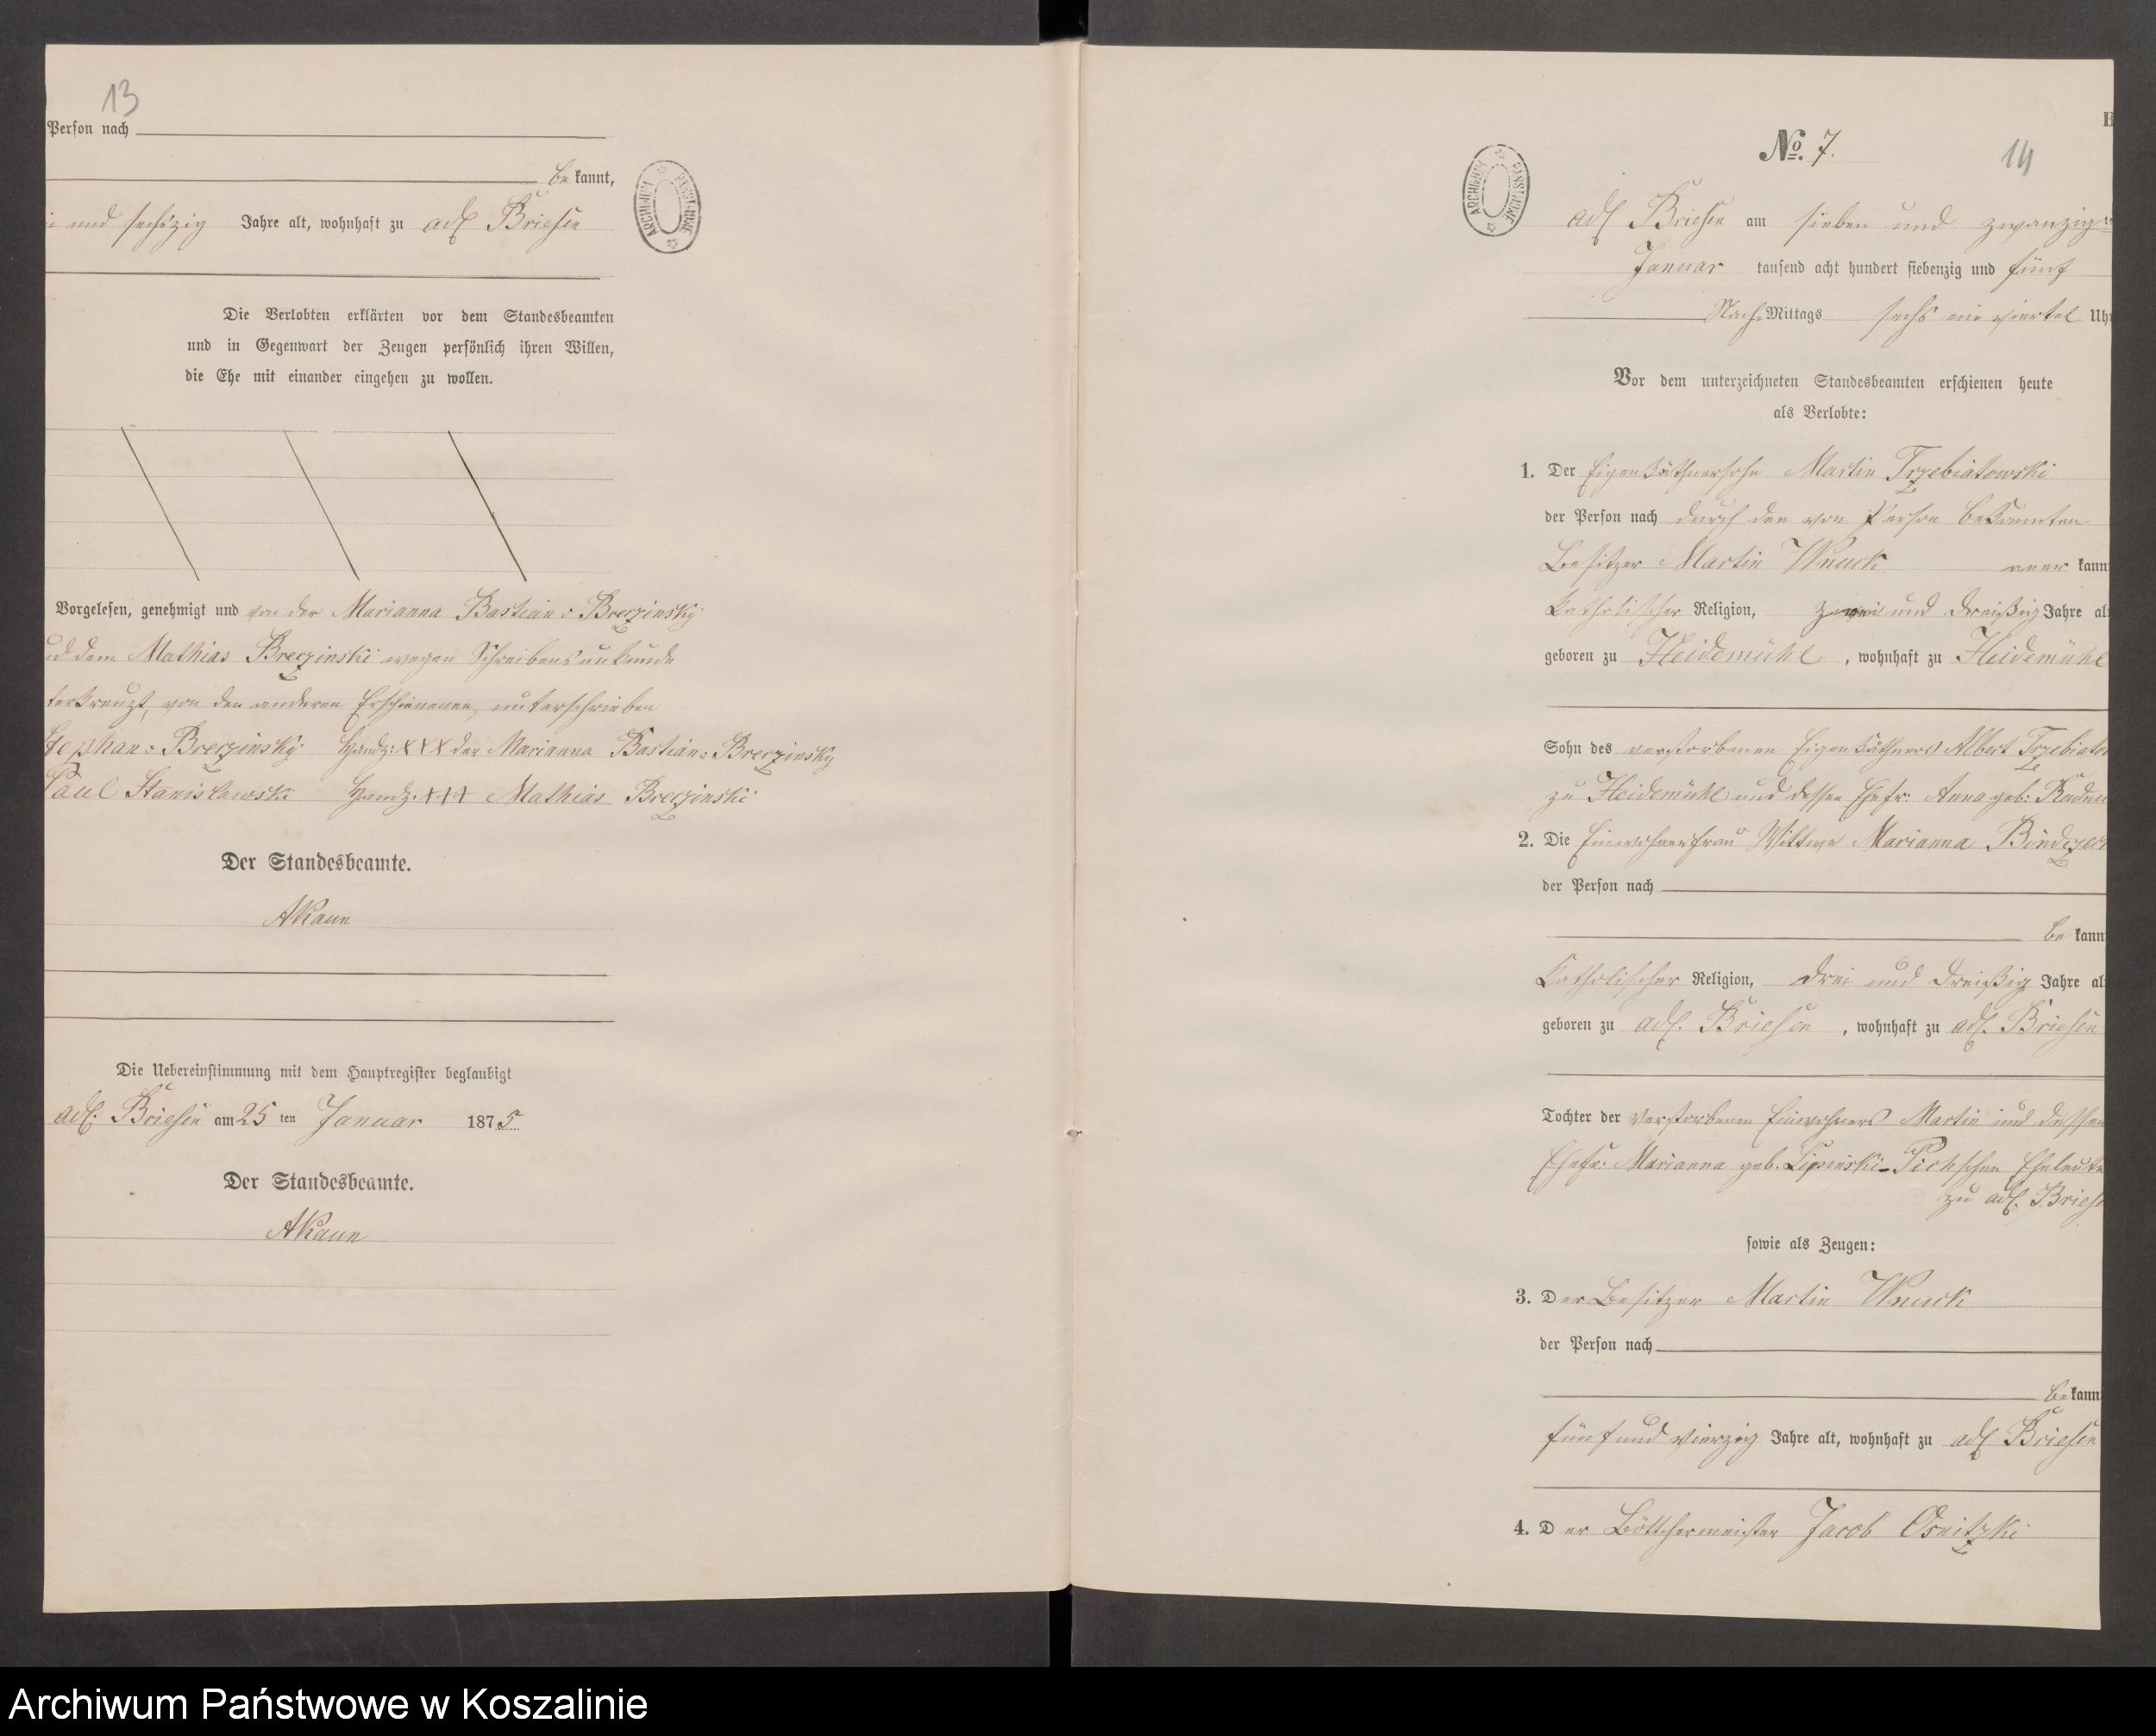 13
Person nach
bekannt,
und sechszig Jahre alt, wohnhaft zu adl Briesen
Die Verlobten erklärten vor dem Standesbeamten
und in Gegenwart der Zeugen persönlich ihren Willen,
die Ehe mit einander eingehen zu wollen.
Vorgelesen, genehmigt und von der Marianna Bastian: Breczinsky
dem Mathias Breczinski wegen Schreibensunkunde
terkreuzt, von den anderen Erschienenen, unterschrieben
Stephan: Breczinsky. Handz: XXX der Marianna Bastian: Breczinsky
Paul Stanislawski Handz. +++ Mathias Breczinski
Der Standesbeamte.
AKaun
Die Uebereinstimmung mit dem Hauptregister beglaubigt
adl. Briesen am 25 ten Januar 1875.
Der Standesbeamte.
AKaun
ARCHIWUM PAŃSTWOWE
No. 7.
14
ARCHIWUM PAŃSTWOWE
adl Briesen am sieben und zwanzig
Januar tausend acht hundert siebenzig und fünf
Nach-Mittags sechs ein viertel Uhr
Vor dem unterzeichneten Standesbeamten erschienen heute
als Verlobte:
1. Der Eigenkäthnersohn Martin Trzebiatowski
der Person nach durch den von Person bekannten
Besitzer Martin Wnuck aner kann
Katholischer Religion, zwei und dreißig Jahre al
geboren zu Heidemühl, wohnhaft zu Heidemühl
Sohn des verstorbenen Eigenkäthners Albert Trzebiato
zu Heidemühl und dessen Ehefr: Anna geb:
2. Die Einwohnerfrau Wittwe Marianna
der Person nach
be kann
Katholischer Religion, drei und dreißig Jahre al
geboren zu adl. Briesen, wohnhaft zu adl. Briesen
Tochter der verstorbenen Einwohners Martin und dessen
Ehefr: Marianna geb. Lipinski-Pichschen Eheleute
zu adl. Briese
sowie als Zeugen:
3. Der Besitzer Martin Wnuck
der Person nach
bekann
fünf und vierzig Jahre alt, wohnhaft zu adl Briesen
4. Der Böttchermeister Jacob Osnitzki
Archiwum Państwowe w Koszalinie